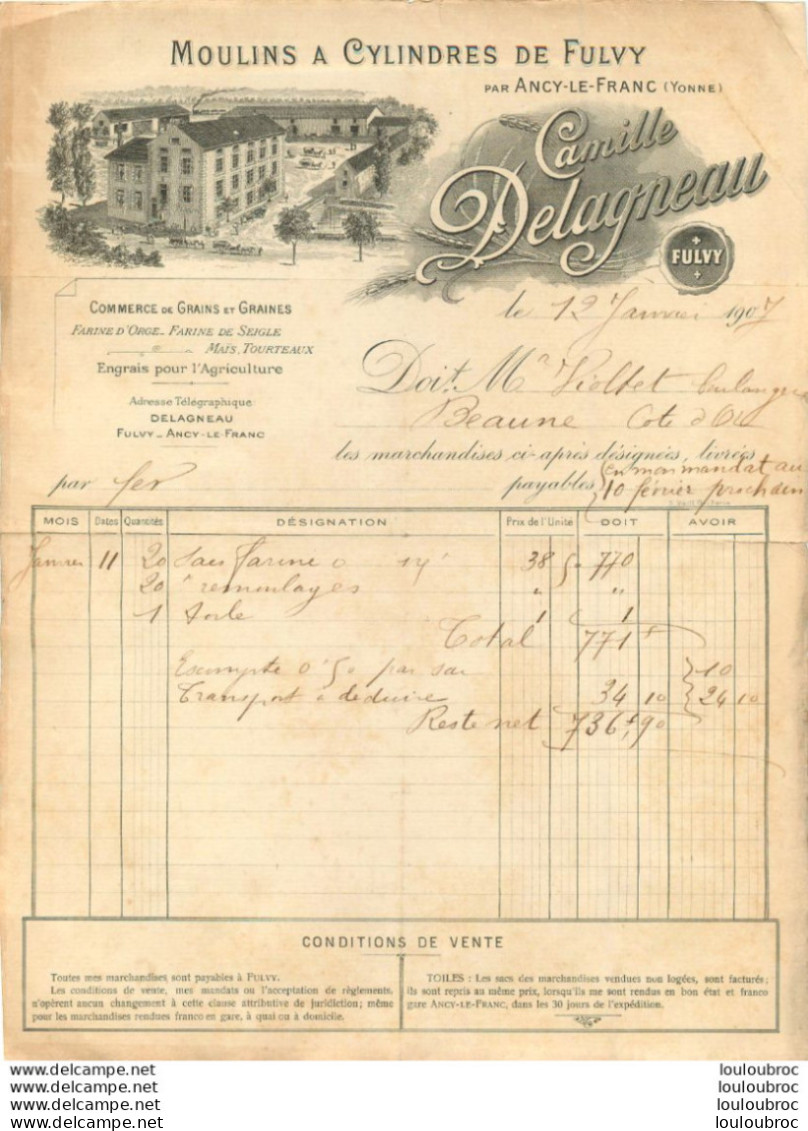 MOULINS A CYLINDRES DE FULVY
PAR ANCY-LE-FRANC (YONNE)
Camille
Delagneau
FULVY
le 12 Janvier 1907
COMMERCE DE GRAINS ET GRAINES
FARINE D'ORGE_ FARINE DE SEIGLE
MAÏS, TOURTEAUX
Engrais pour l'Agriculture
Adresse Télégraphique:
DELAGNEAU
FULVY_ANCY-LE-FRANC
Doit Mr Viollet boulanger
Beaune Cote d'Or
les marchandises ci-après désignées, livrées
par fer
payables en mon mandat au
10 février prochain
MOIS Dates Quantités DÉSIGNATION Prix de l'Unité DOIT AVOIR
Janvier 11 20 sacs farine 38 50 770
20 " remoulages " "
1 toile 1 1
Total 771f
Escompte 0f50 par sac 10
Transport à déduire 34 10 24 10
Reste net 736f,90
CONDITIONS DE VENTE
Toutes mes marchandises sont payables à FULVY.
Les conditions de vente, mes mandats ou l'acceptation de règlements,
n'opèrent aucun changement à cette clause attributive de juridiction; même
pour les marchandises rendues franco en gare, à quai ou à domicile.
TOILES : Les sacs des marchandises vendues non logées, sont facturés;
ils sont repris au même prix, lorsqu'ils me sont rendus en bon état et franco
gare ANCY-LE-FRANC, dans les 30 jours de l'expédition.
https://www.delcampe.net/fr/collections/boutique/louloubroc
https://www.delcampe.net/fr/collections/boutique/louloubroc
https://www.delcampe.net/fr/collections/boutique/louloubroc
https://www.delcampe.net/fr/collections/boutique/louloubroc
louloubroc
louloubroc
louloubroc
louloubroc